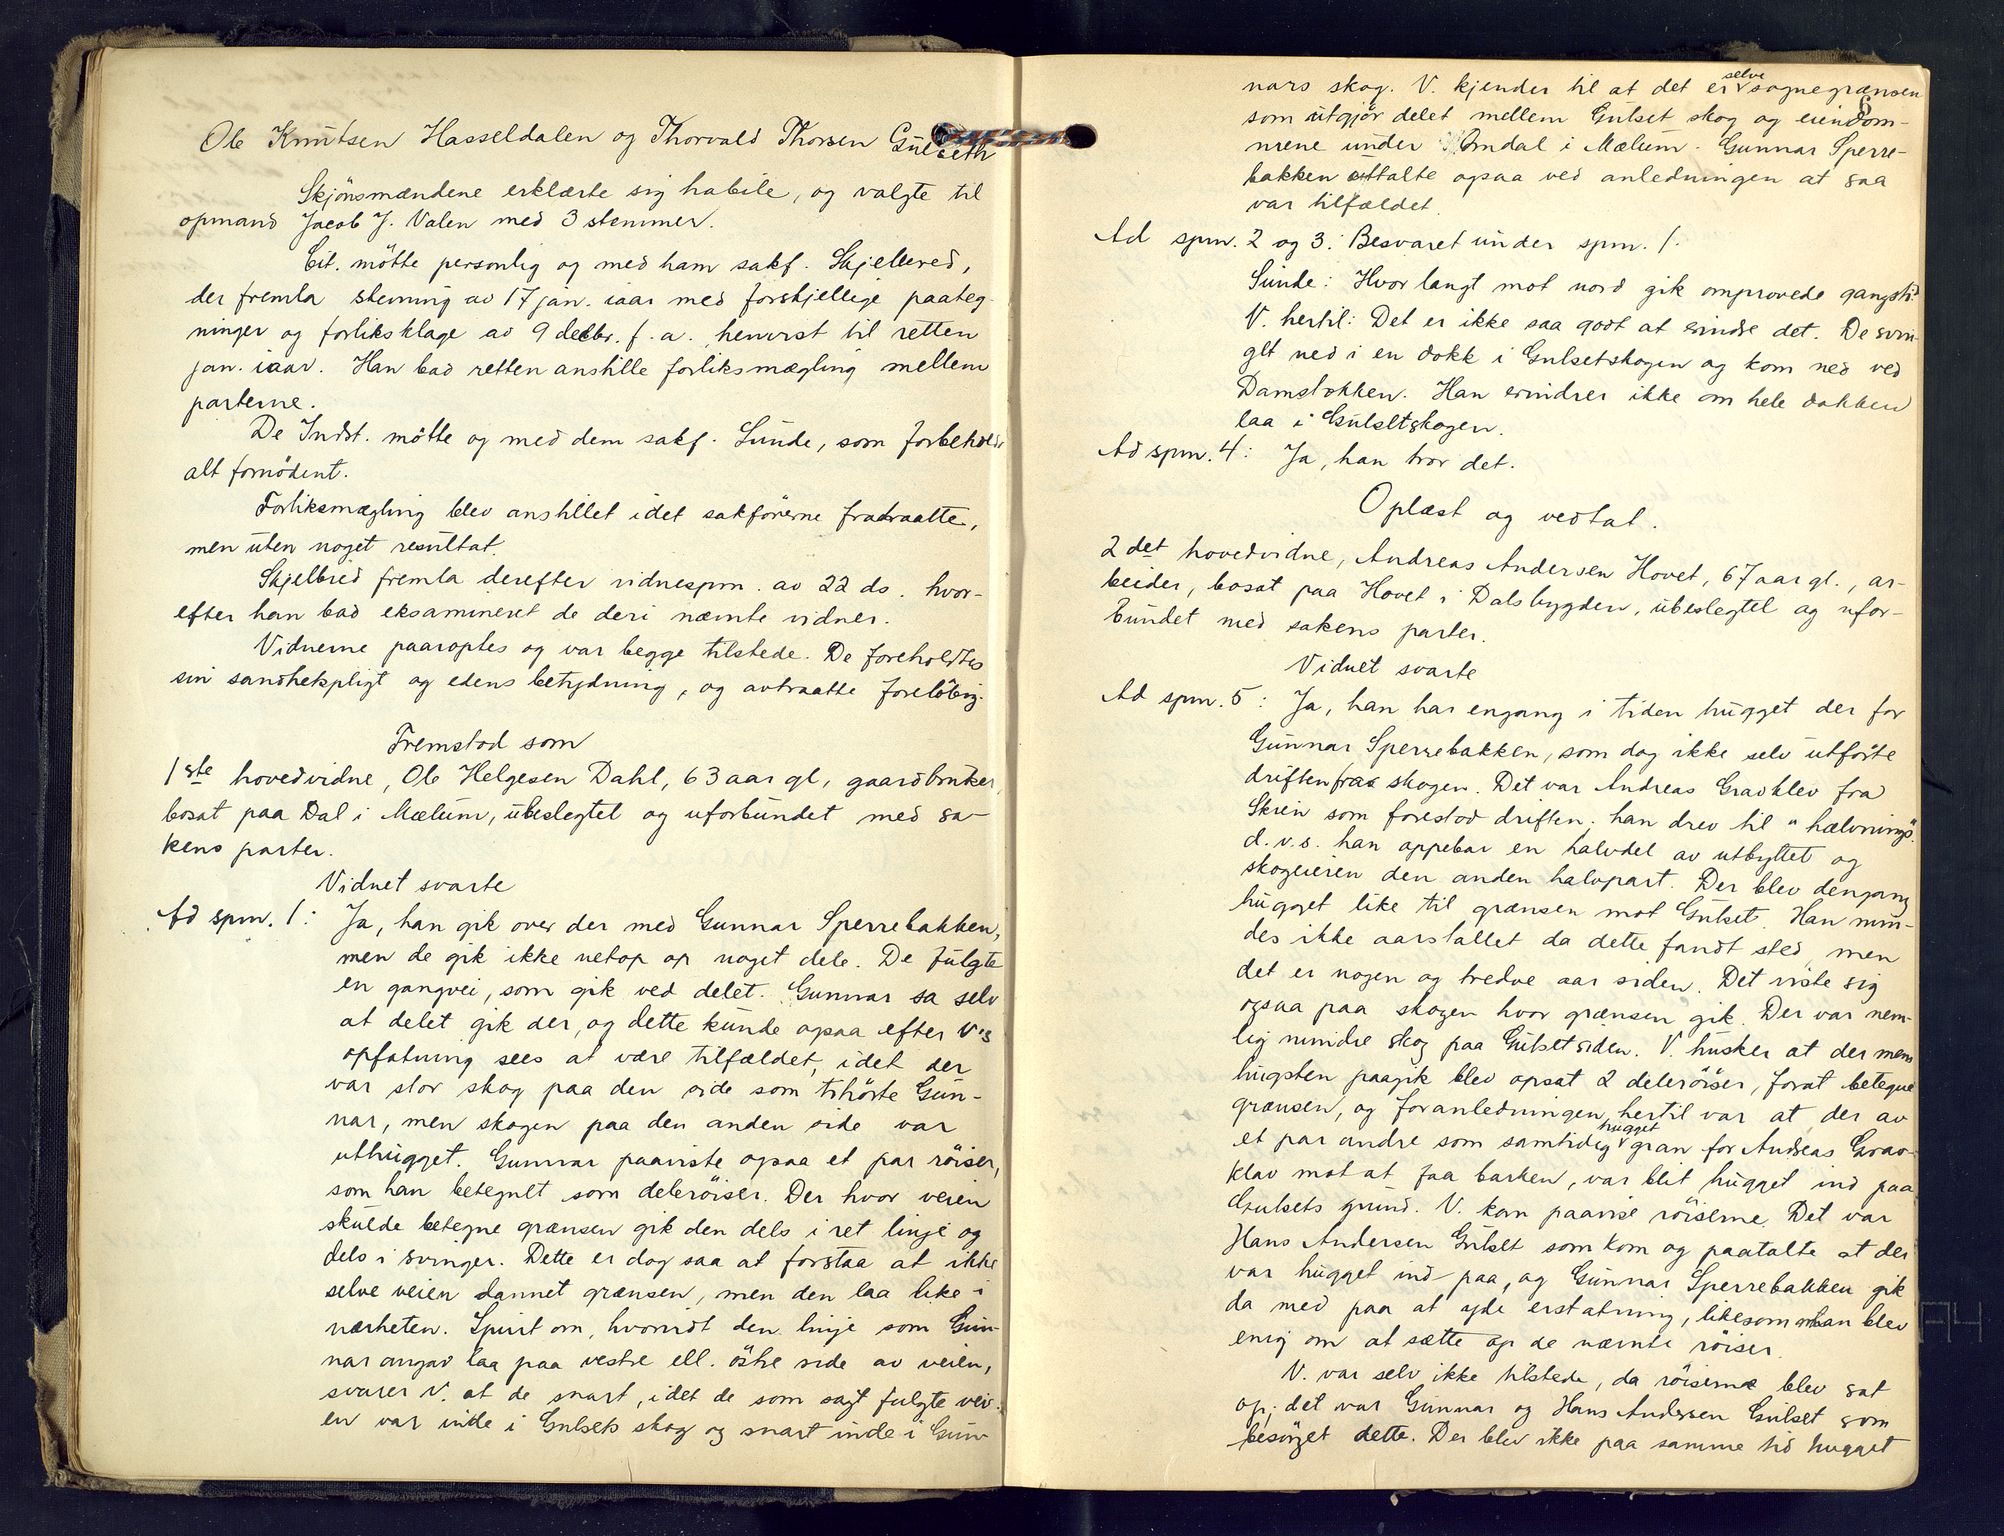 Ole Knutsen Hasseldalen og Thorvald Thorsen Gulseth
Skjönsmændene erklærte sig habile, og valgte til
opmand Jacob J. Valen med 3 stemmer.
Cit. mötte personlig og med ham sakf. Skjelbred,
der fremla stevning av 17 jan. iaar med forskjellige paateg-
ninger og forliksklage av 9 decbr. f. a. henvist til retten
jan. iaar. Han bad retten anstille forliksmægling mellem
parterne.
De Indst. mötte og med dem sakf. Sunde, som forbeholdt
alt fornödent.
Forliksmægling blev anstillet idet sakförerne fratraatte,
men uten noget resultat.
Skjelbred fremla derefter vidnespm. av 22 ds. hvor-
efter han bad eksamineret de deri nævnte vidner.
Vidnerne paaroptes og var begge tilstede. De foreholdtes
sin sandhetspligt og edens betydning, og avtraatte forelöbig.
Fremstod som
1ste hovedvidne, Ole Helgesen Dahl, 63 aar gl, gaardbruker,
bosat paa Dal i Mælum, ubeslegtet og uforbundet med sa-
kens parter.
Vidnet svarte
Ad spm. 1: Ja, han gik over der med Gunnar Sperrebakken,
men de gik ikke netop op noget dele. De fulgte
en gangvei, som gik ved delet. Gunnar sa selv
at delet gik der, og dette kunde ogsaa efter V's
opfatning sees at være tilfældet, idet der
var stor skog paa den side som tihörte Gun-
nar, men skogen paa den anden side var
uthugget. Gunnar paaviste ogsaa et par röiser,
som han betegnet som deleröiser. Der hvor veien
skulde betegne grænsen gik den dels i ret linje og
dels i svinger. Dette er dog saa at forstaa at ikke
selve veien dannet grænsen, men den laa like i
nærheten. Spurt om, hvorvidt den linje som Gun-
nar angav laa paa vestre ell. östre side av veien,
svarer V. at de snart, idet de som sagt fulgte vei-
en var inde i Gulsets skog og snart inde i Gun-
6
nars skog. V. kjender til at det er selve sognegrænsen
som utgjör delet mellem Gulset skog og eiendom-
mene under Omdal i Mælum. Gunnar Sperre-
bakken uttalte ogsaa ved anledningen at saa
var tilfældet.
Ad spm. 2 og 3: Besvaret under spm. 1.
Sunde: Hvor langt mot nord gik omprovede gangsti?
V. hertil: Det er ikke saa godt at erindre det. De svin-
get ned i en dokk i Gulsetskogen og kom ned ved
Damstokken. Han erindrer ikke om hele dokken
laa i Gulsetskogen.
Ad spm. 4: Ja, han tror det.
Oplæst og vedtat.
2det hovedvidne, Andreas Andersen Hovet, 67 aar gl., ar-
beider, bosat paa Hovet i Dalsbygden, ubeslegtet og ufor-
bundet med sakens parter.
Vidnet svarte
Ad spm. 5: Ja, han har engang i tiden hugget der for
Gunnar Sperrebakken, som dog ikke selv utförte
driften fra skogen. Det var Andreas Gravklev fra
Skien som forestod driften; han drev til "hælvnings"
d.v.s. han oppebar en halvdel av utbyttet og
skogeieren den anden halvpart. Der blev dengang
hugget like til grænsen mot Gulset. Han min-
des ikke aarstallet da dette fandt sted, men
det er nogen og tredve aar siden. Det viste sig
ogsaa paa skogen hvor grænsen gik. Der var nem-
lig mindre skog paa Gulsetsiden. V. husker at der mens
hugsten paagik blev opsat 2 deleröiser, forat betegne
grænsen, og foranledningen hertil var at der av
et par andre som samtidig hugget gran for Andreas Grav-
klev mot at faa barken, var blit hugget ind paa
Gulsets grund. V. kan paavise röiserne. Det var
Hans Andersen Gulset som kom og paatalte at der
var hugget ind paa, og Gunnar Sperrebakken gik
da med paa at yde erstatning, likesom man blev
enig om at sætte op de nævnte röiser.
V. var selv ikke tilstede, da röiserne blev sat
op; det var Gunnar og Hans Andersen Gulset som
besörget dette. Der blev ikke paa samme tid hugget